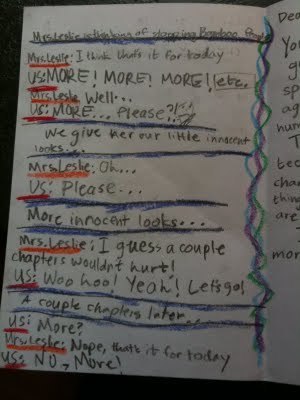 Mrs. Leslie is thinking of stopping Bamboo People
Mrs. Leslie: I think that's it for today
US: MORE! MORE! MORE! etc.
Mrs. Leslie Well...
US: MORE... Please?!?!
We give her our little innocent
looks...
Mrs. Leslie: Oh...
US: Please...
More innocent looks...
Mrs. Leslie: I guess a couple
chapters wouldn't hurt!
US: Woo hoo! Yeah! Let's go!
A couple chapters later...
US: More?
Mrs. Leslie: Nope, that's it for today
US: NO, More!
De
You
g
sp
ag
hur
T
tec
cha
thing
are
more